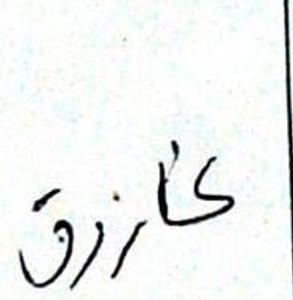 کا رزق